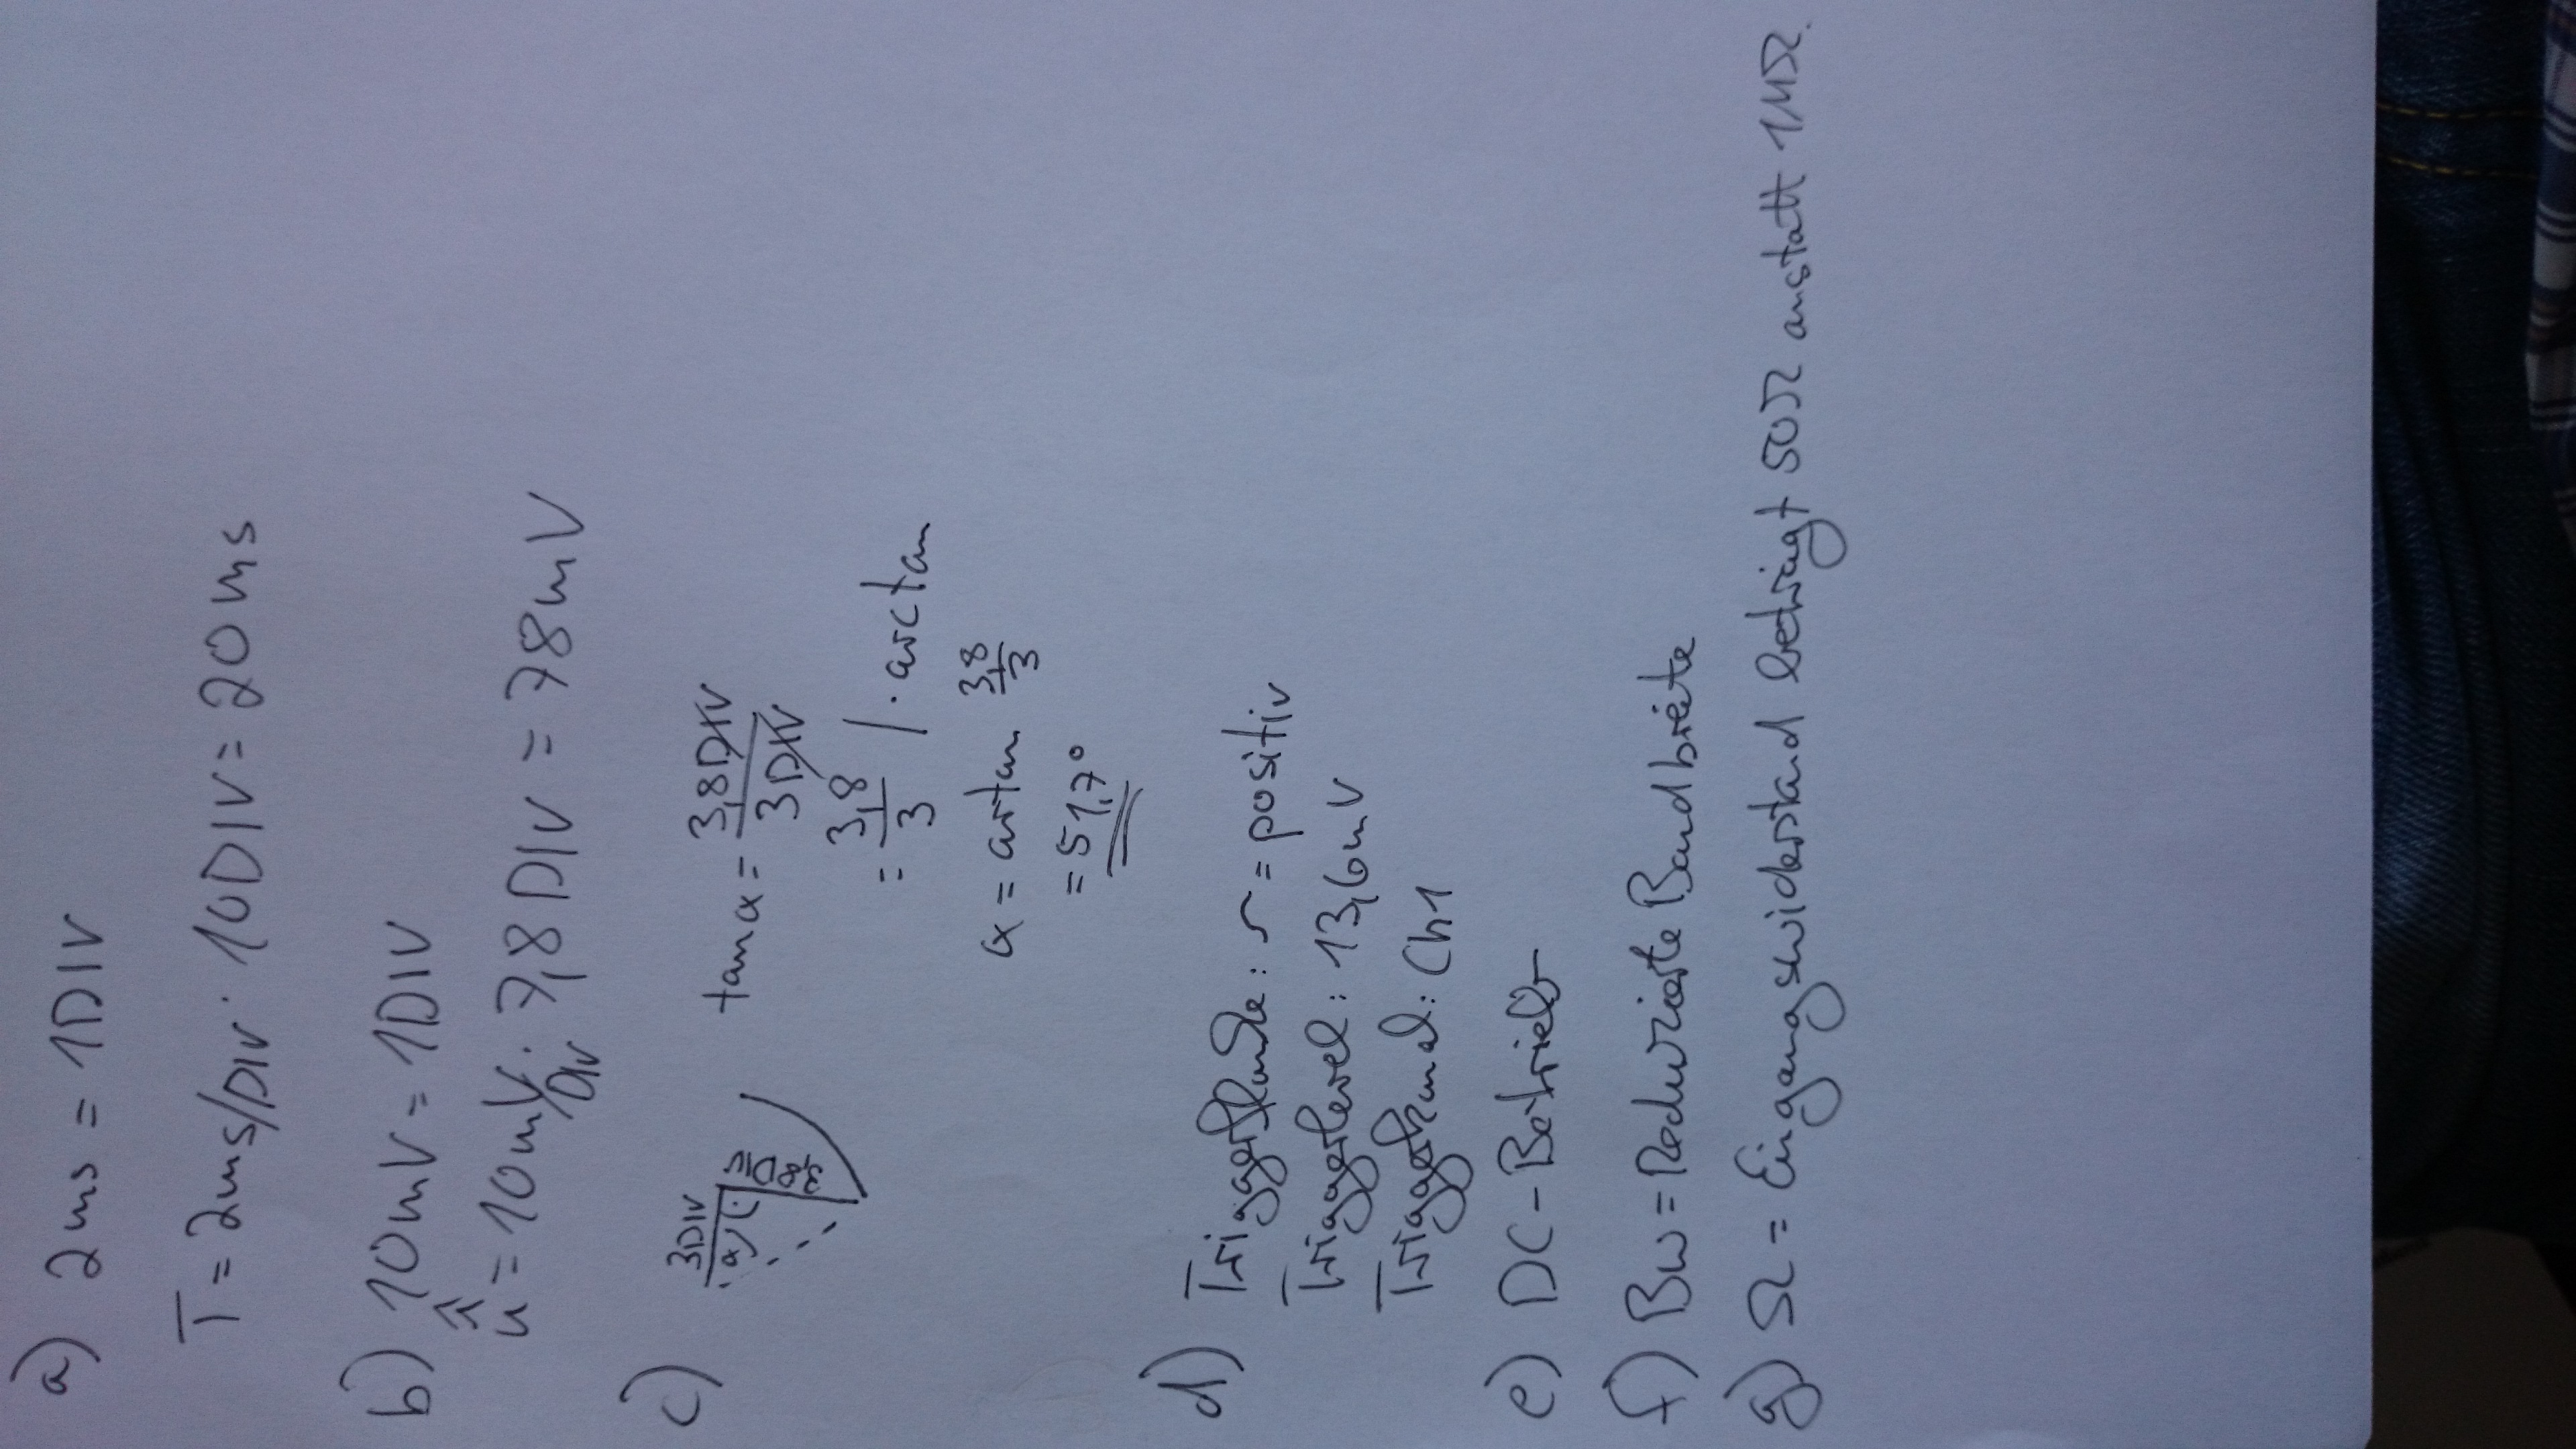 a) 2ms = 1DIV
T = 2ms/DIV · 10DIV = 20ms
b) 10mV = 1DIV
û̂ = 10mV/DIV · 7,8DIV = 78mV
c) 3DIV α tanα = 3,8DIV/3DIV
= 3,8/3 | · arctan
α = artan 3,8/3
= 51,7°
d) Triggerflanke: = positiv
Triggerlevel: 13,6mV
Triggerkanal: Ch1
e) DC-Betrieb
f) Bw = Reduzierte Bandbreite
g) Ω = Eingangswiderstand beträgt 50Ω anstatt 1MΩ.